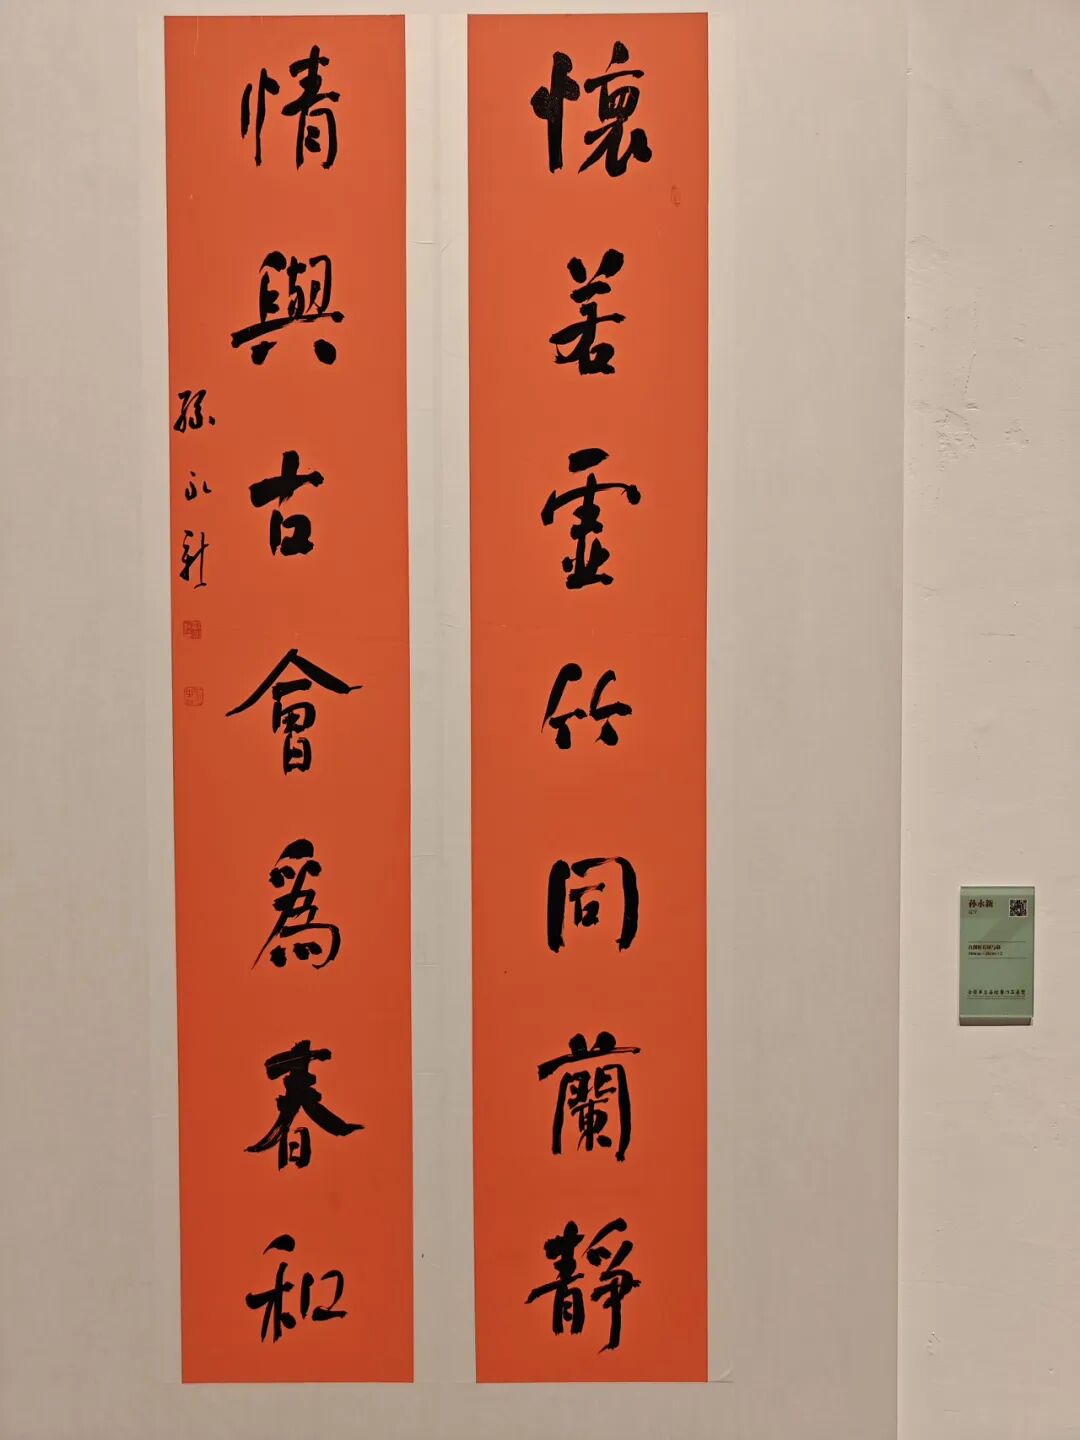 懷若虛竹同蘭靜
情與古會為春和
孫永新
孙永新
辽宁